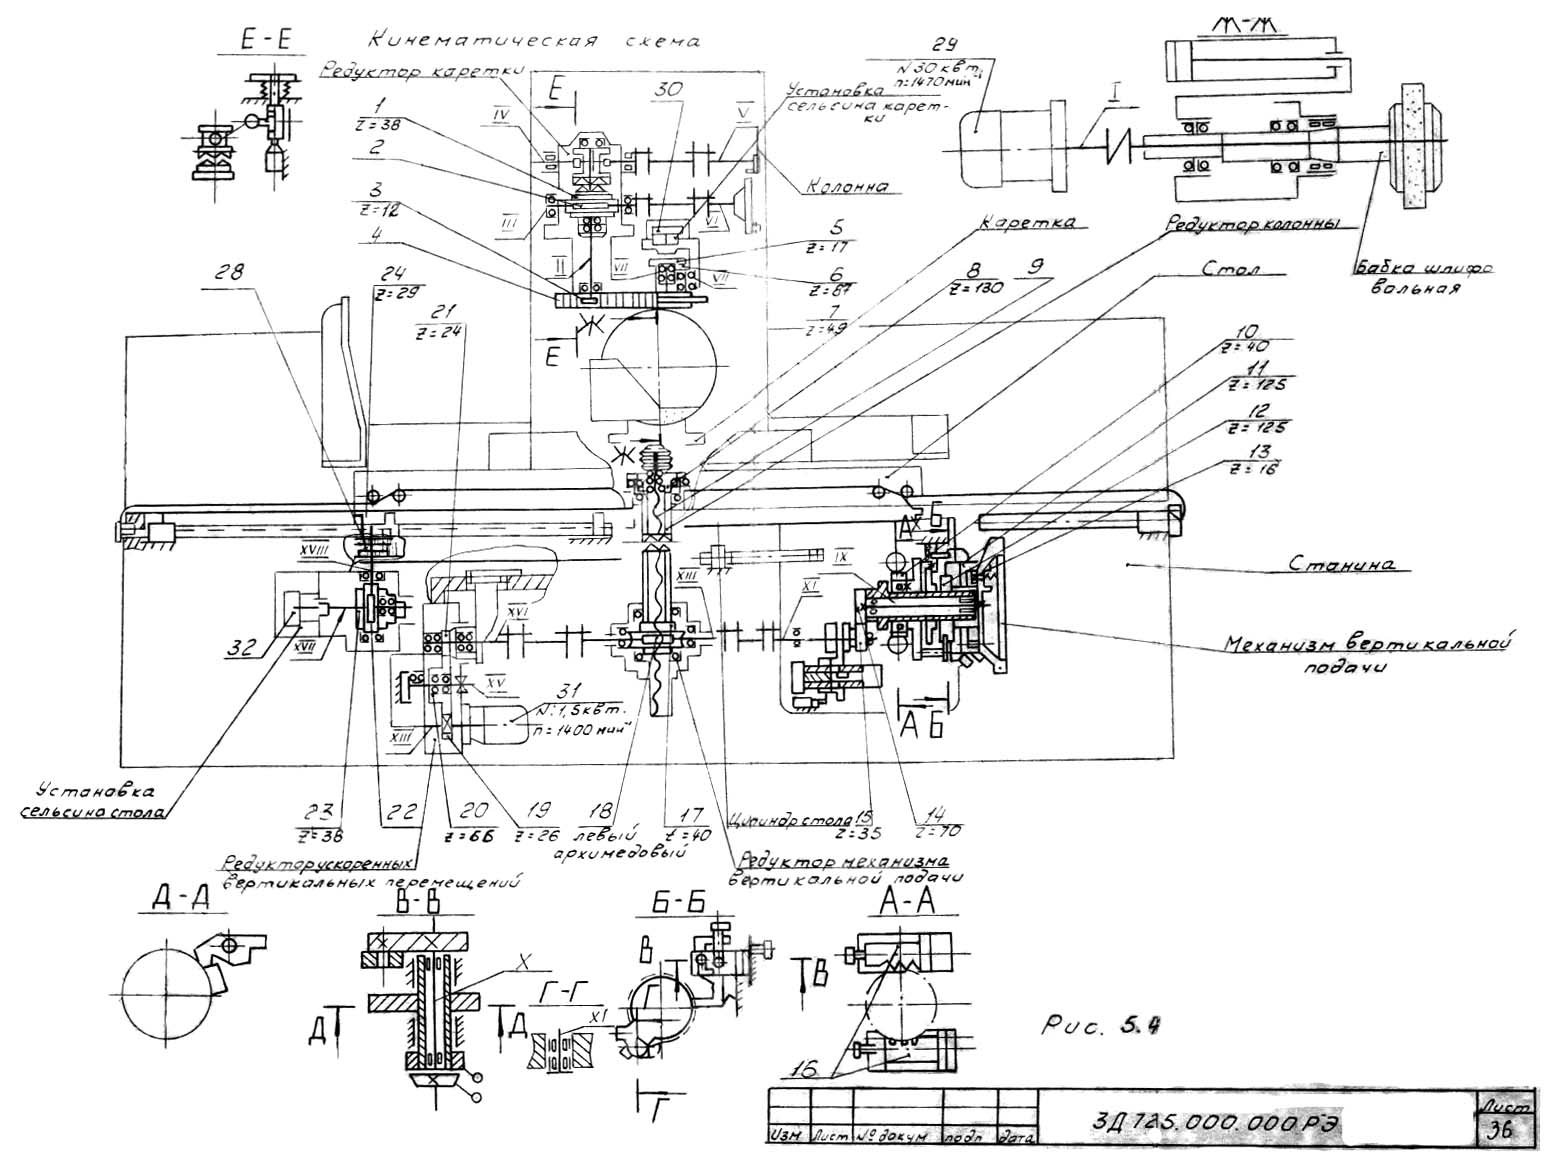 Е-Е
Кинематическая схема
Редуктор каретки
1
Z=38
2
3
Z=12
4
28
24
Z=29
21
Z=24
Е
IV
III
II
VII
VII
30
V
VI
Установка
сельсина карет-
ки
Колонна
5
Z=17
6
Z=87
7
Z=49
Ж
Е
29
N30квт.
n=1470мин⁻¹
I
Ж-Ж
Каретка
Редуктор колонны
8
Z=130
9
Стол
Бабка шлифо
вальная
10
Z=40
11
Z=125
12
Z=125
13
Z=16
Ж
А
Б
Станина
Механизм вертикальной
подачи
XVIII
XVII
32
XVI
XV
XIII
XIII
XI
IX
31
N=1,5квт.
n=1400мин⁻¹
А Б
Установка
сельсина стола
23
Z=38
22
20
Z=66
19
Z=26
18
левый
архимедовый
17
Z=40
Цилиндр стола
15
Z=35
14
Z=70
Редуктор ускоренных
вертикальных перемещений
Редуктор механизма
вертикальной подачи
Д-Д
В-В
X
Д
Д
Г-Г
XI
Б-Б
В
В
Г
Г
А-А
16
Рис. 5.4
Изм
Лист
№ докум
подп
дата
3Д725.000.000РЭ
Лист
36